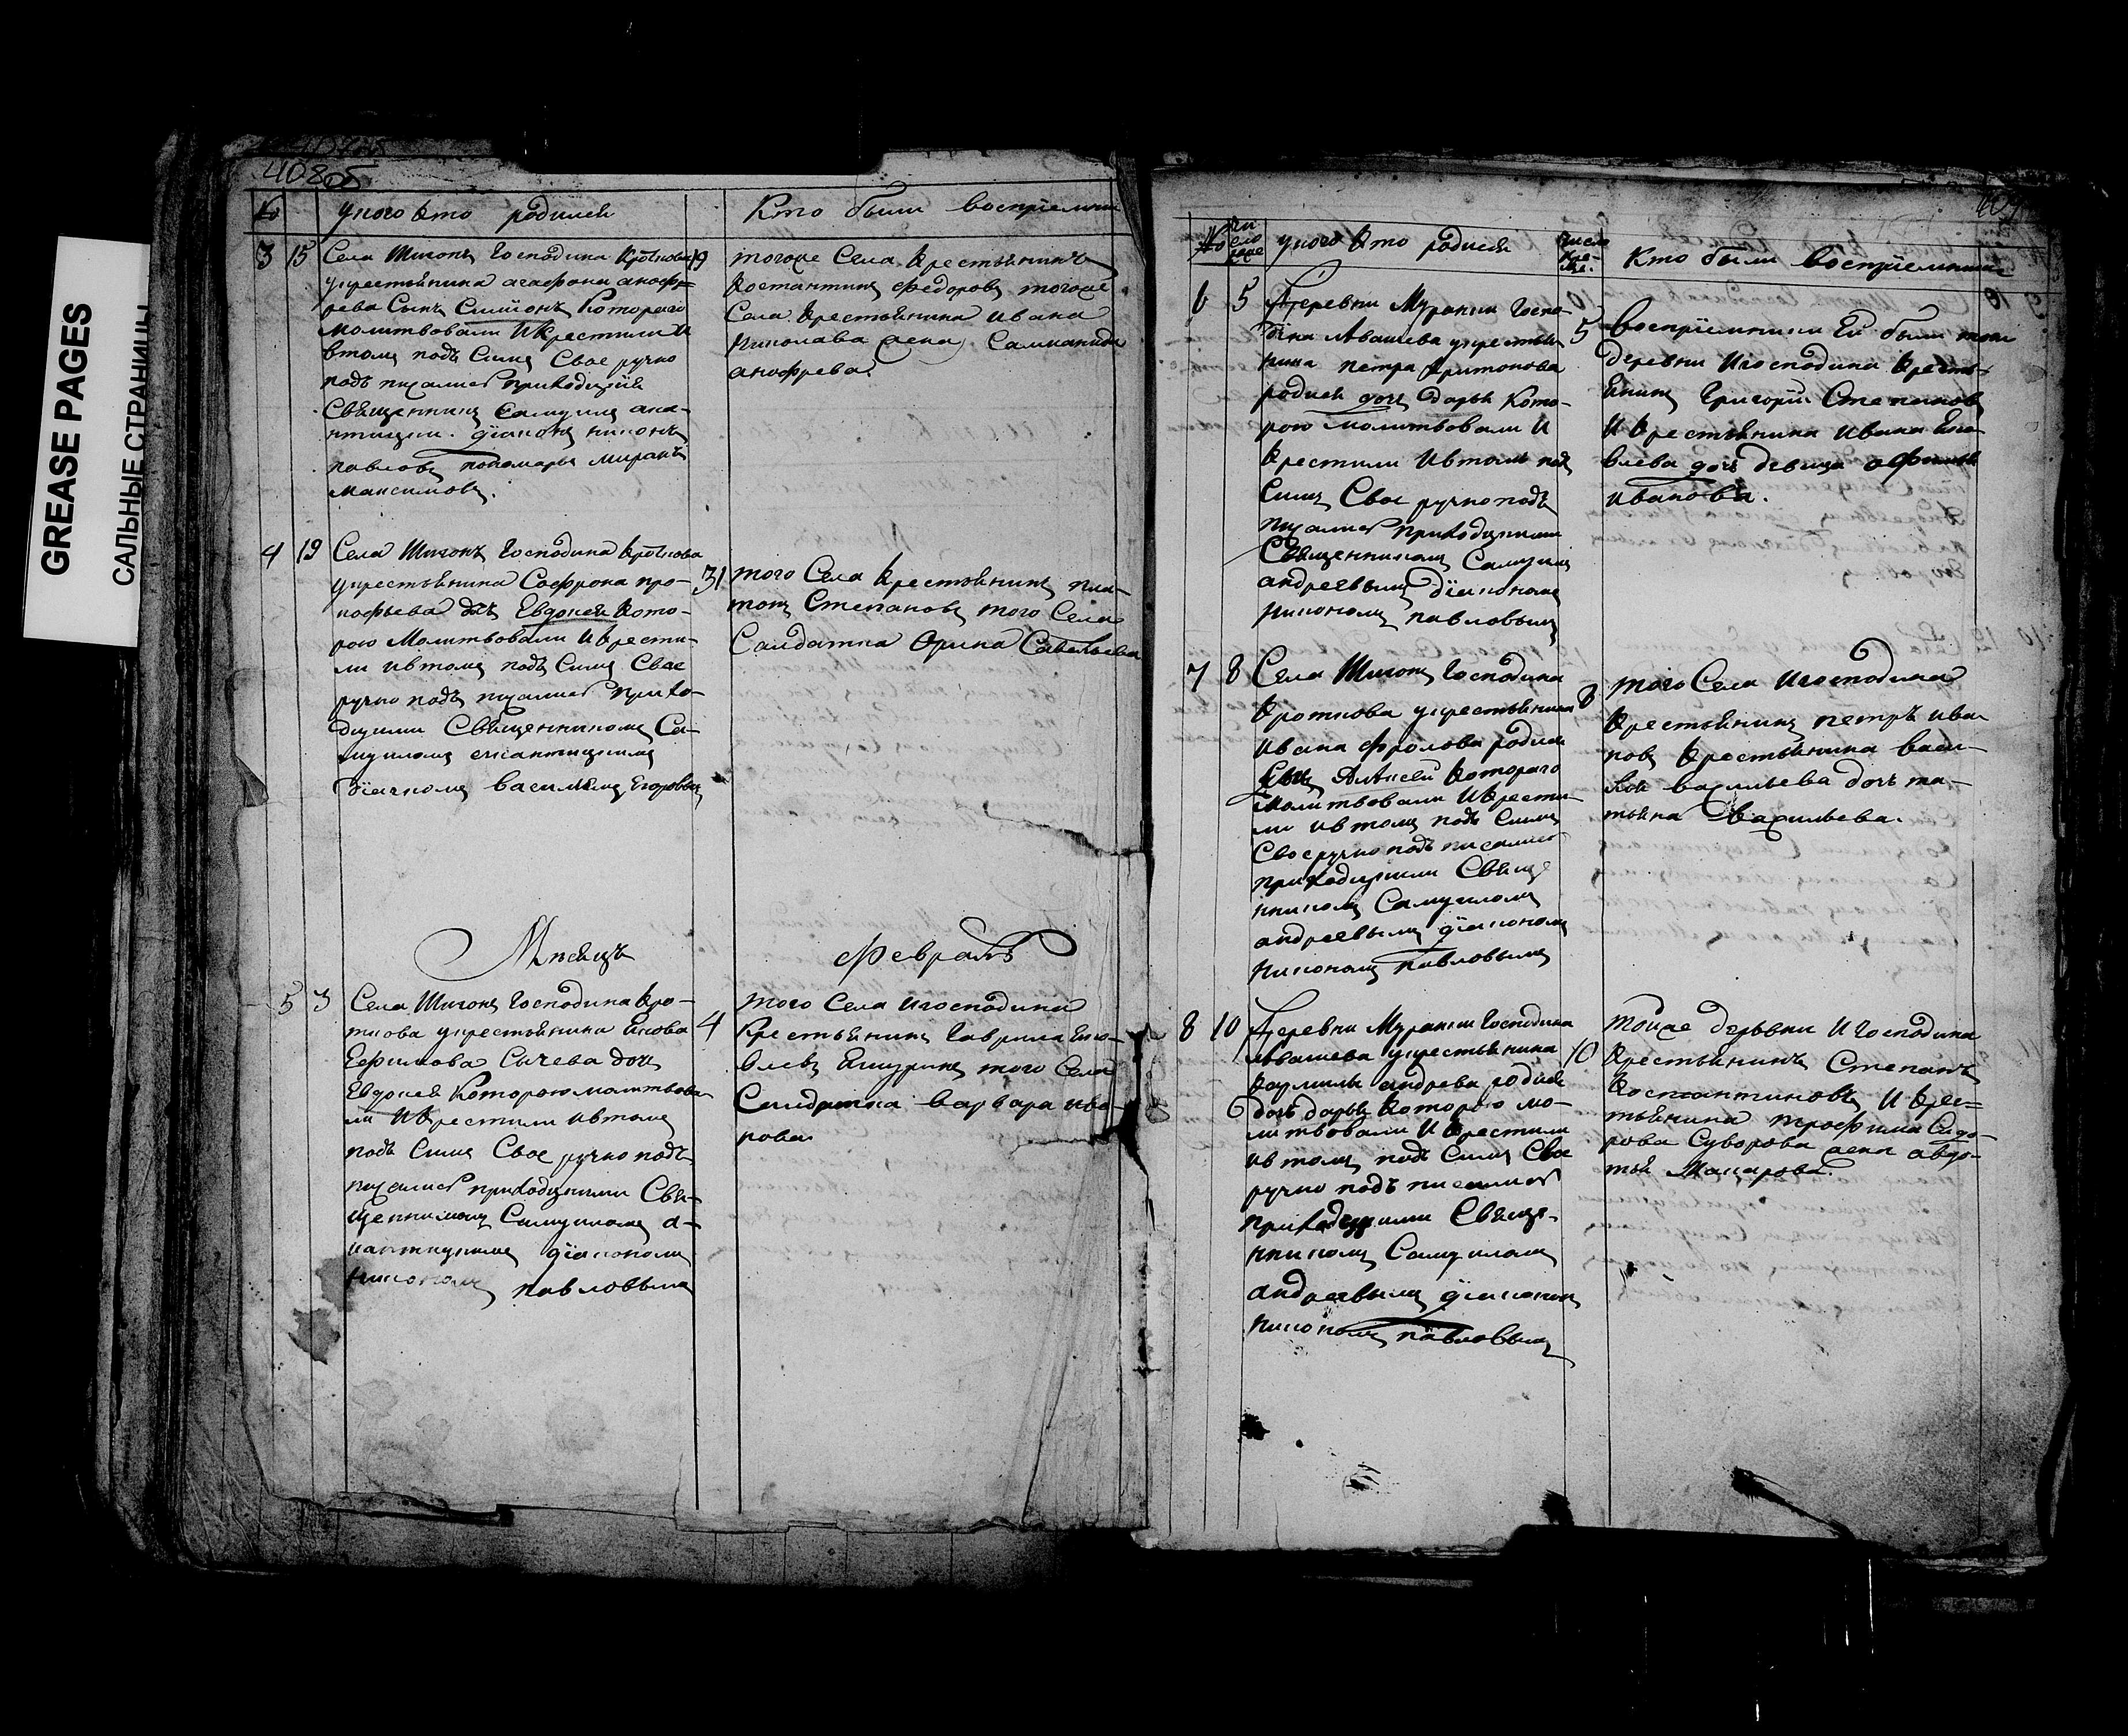 GREASE PAGES
САЛЬНЫЕ СТРАНИЦЫ
408об
№ у кого кто родился Кто были воспрiемники
3 15 Села Шигонъ Господина Кроткова
у крестьянина агафона аноф=
рева Сынъ Симионъ Которого
молитвовали И Крестили И
втомъ подъ Симъ Свое ручно
подъ писались приходцкiя
Священникъ Самуилъ
дiаконъ никонъ
павловъ пономарь миранъ
максимовъ.
19 тогоже Села Крестьянинъ
Костантинъ Федоровъ тогоже
Села Крестьянина Ивана
Николава жена
анофрева.
4 19 Села Шигонъ Господина Кроткова
у крестьянина Софрона про-
кофьева дочь Евдокея Кото-
рою Молитвовали И Крести-
ли И втомъ подъ Симъ Свое
ручно подъ писались прихо-
дцкими Священникомъ Са-
муиломъ
Дiячкомъ васильемъ Егоровымъ
31 того Села Крестьянинъ пла-
тонъ Степановъ того Села
Салдатка Орина Савельева
Мпсяцъ Февраль
5 3 Села Шигонъ Господина Кро-
ткова у крестьянина Якова
Ефимова Сычева дочь
Евдокея Которою молитвова-
ли И Крестили И втомъ
подъ Симъ Свое ручно подъ
писались приходцкими Свя-
щенникомъ Самуиломъ а-
дiакономъ
никономъ павловымъ
4 того Села И господина
Крестьянинъ Гаврила Яко-
влевъ того Села
Салдатка варвара ива-
нова
409
№ Чи сло роже у кого кто родился Число кре- ще. Кто были Воспрiемники
6 5 Деревни Муранки Госпо-
дина Авашева у крестья-
нина петра Аритонова
родися дочь Дарья Кото-
рою молитвовали И
Крестили И втомъ подъ
Симъ Свое ручно подъ
писались приходцкими
Священникомъ Самуиломъ
андреевымъ дiякономъ
никономъ павловымъ
5 Воспрiемники Ей были тоже
деревни И господина Кресть-
янинъ Григорiй Степановъ
И Крестьянина Ивана Яко-
влева дочь девица
иванова.
7 8 Села Шигонъ Господина
Кроткова у крестьянина
ивана Фролова родися
Сынъ Алѣксей Которого
Молитвовали И Крести-
ли И втомъ подъ Симъ
Свое ручно подъ писались
приходцкими Свяще
нникомъ Самуиломъ
андреевымъ дiякономъ
никономъ павловымъ
8 того Села И господина
Крестьянинъ петръ ива-
новъ Крестьянина васи-
лья васильева дочь та-
тьяна Васильева.
8 10 Деревни Муранки Господина
Авашева у крестьянина
андрева родися
дочь дарья Которою мо-
литвовали И Крестили
И втомъ подъ Симъ Свое
ручно подъ писались
приходцкими Свяще-
нникомъ Самуиломъ
андреевымъ дiякономъ
никономъ павловымъ
10 тойже дѣрѣвни И Господина
Крестьянинъ Степанъ
Костантиновъ И Крес=
тьянина трофима Сидо-
рова Суворова жена авдо-
тья Макарова.